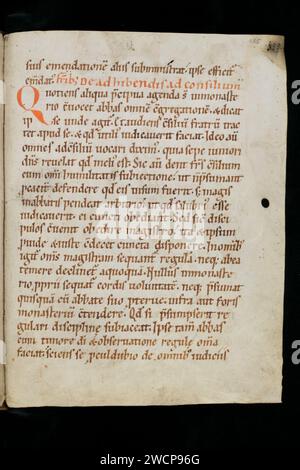 suis emendationē aliis subministrat . ipse efficit
emdat'. De adhibendis ad consilium
Quotiens aliqua p̄cipua agenda s; in monaste
rio c̄uocet abbas omnē c̄gregationē & dicat
ip̄e unde agit'. Et audiens c̄siliū fratrū trac
tet apud se. & qd̄ utili' iudicauerit faciat. Ideo aū
omnes ad c̄siliū uocari dixim'. quia sepe iuniori
dn̄s reuelat qd̄ meli' est. Sic aū dent fr̄s c̄silium
cum om̄i humilitatis subiectione. ut n̄ p̄sumant
p̄caciť defendere qd̄ eis uisum fuerit. & magis
in abbatis pendeat arbitrio. ut qd̄ salubri' esse
iudicauerit. ei cuncti obediant. Sed sic disci
pulos c̄uenit obedire magistro. ita & ipsum
puide & iuste c̄decet cuncta disponere. In om̄ib;
igit' om̄s magistram sequant' regulā. neq; ab ea
temere declinet' a quoquā. Nullus in monaste
rio pprii sequat' cordis uoluntatē. neq; p̄sumat
quisquā cū abbate suo pterue. infra aut foris
monasteriū c̄tendere. Qd̄ si p̄sumpserit re
gulari discipline subiaceat. Ipse tam̄ abbas
cum timore dī & obseruatione regule om̄a
faciat. sciens se p̄culdubio de om̄ib; iudiciis
alamy
Image ID: 2WCP96G
www.alamy.com